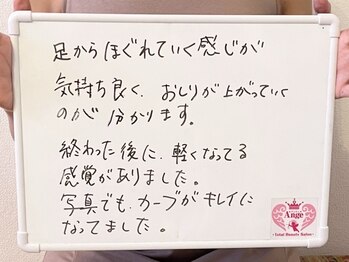 足からほぐれていく感じが
気持ち良く、おしりが上がっていく
のが分かります。
終わった後に、軽くなってる
感覚がありました。
写真でも、カーブがキレイに
なってました。
Ange
Total Beauty Salon